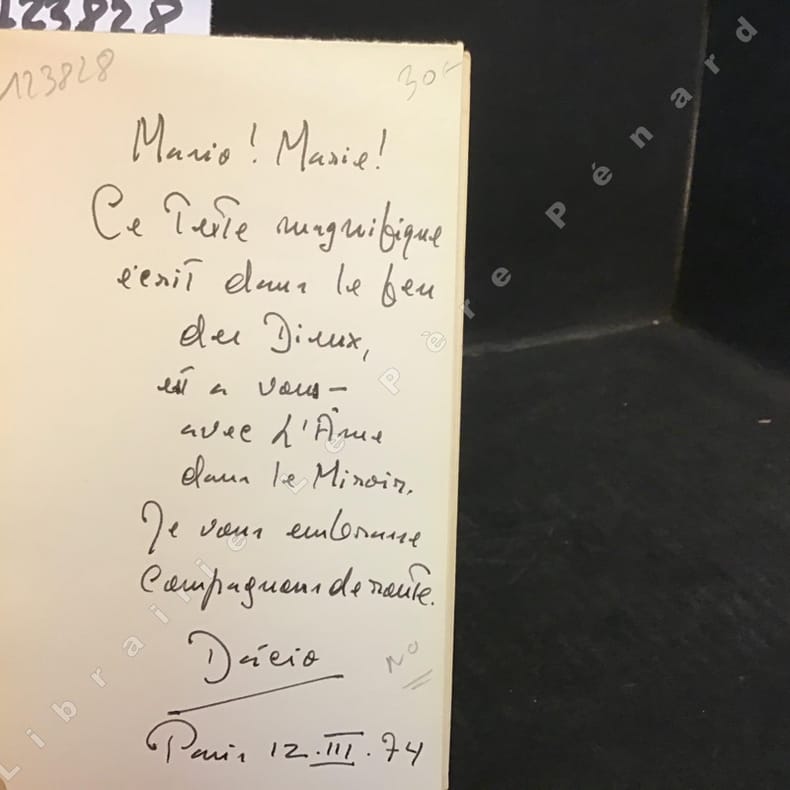 123828
123828
30€
Mario ! Marie !
Ce Texte magnifique
écrit dans le feu
des Dieux,
est a vous –
avec L'Âme
dans le Miroir.
Je vous embrasse
Compagnons de route.
Dácio
No
Paris 12.III.74
Librairie Le Père Pénard